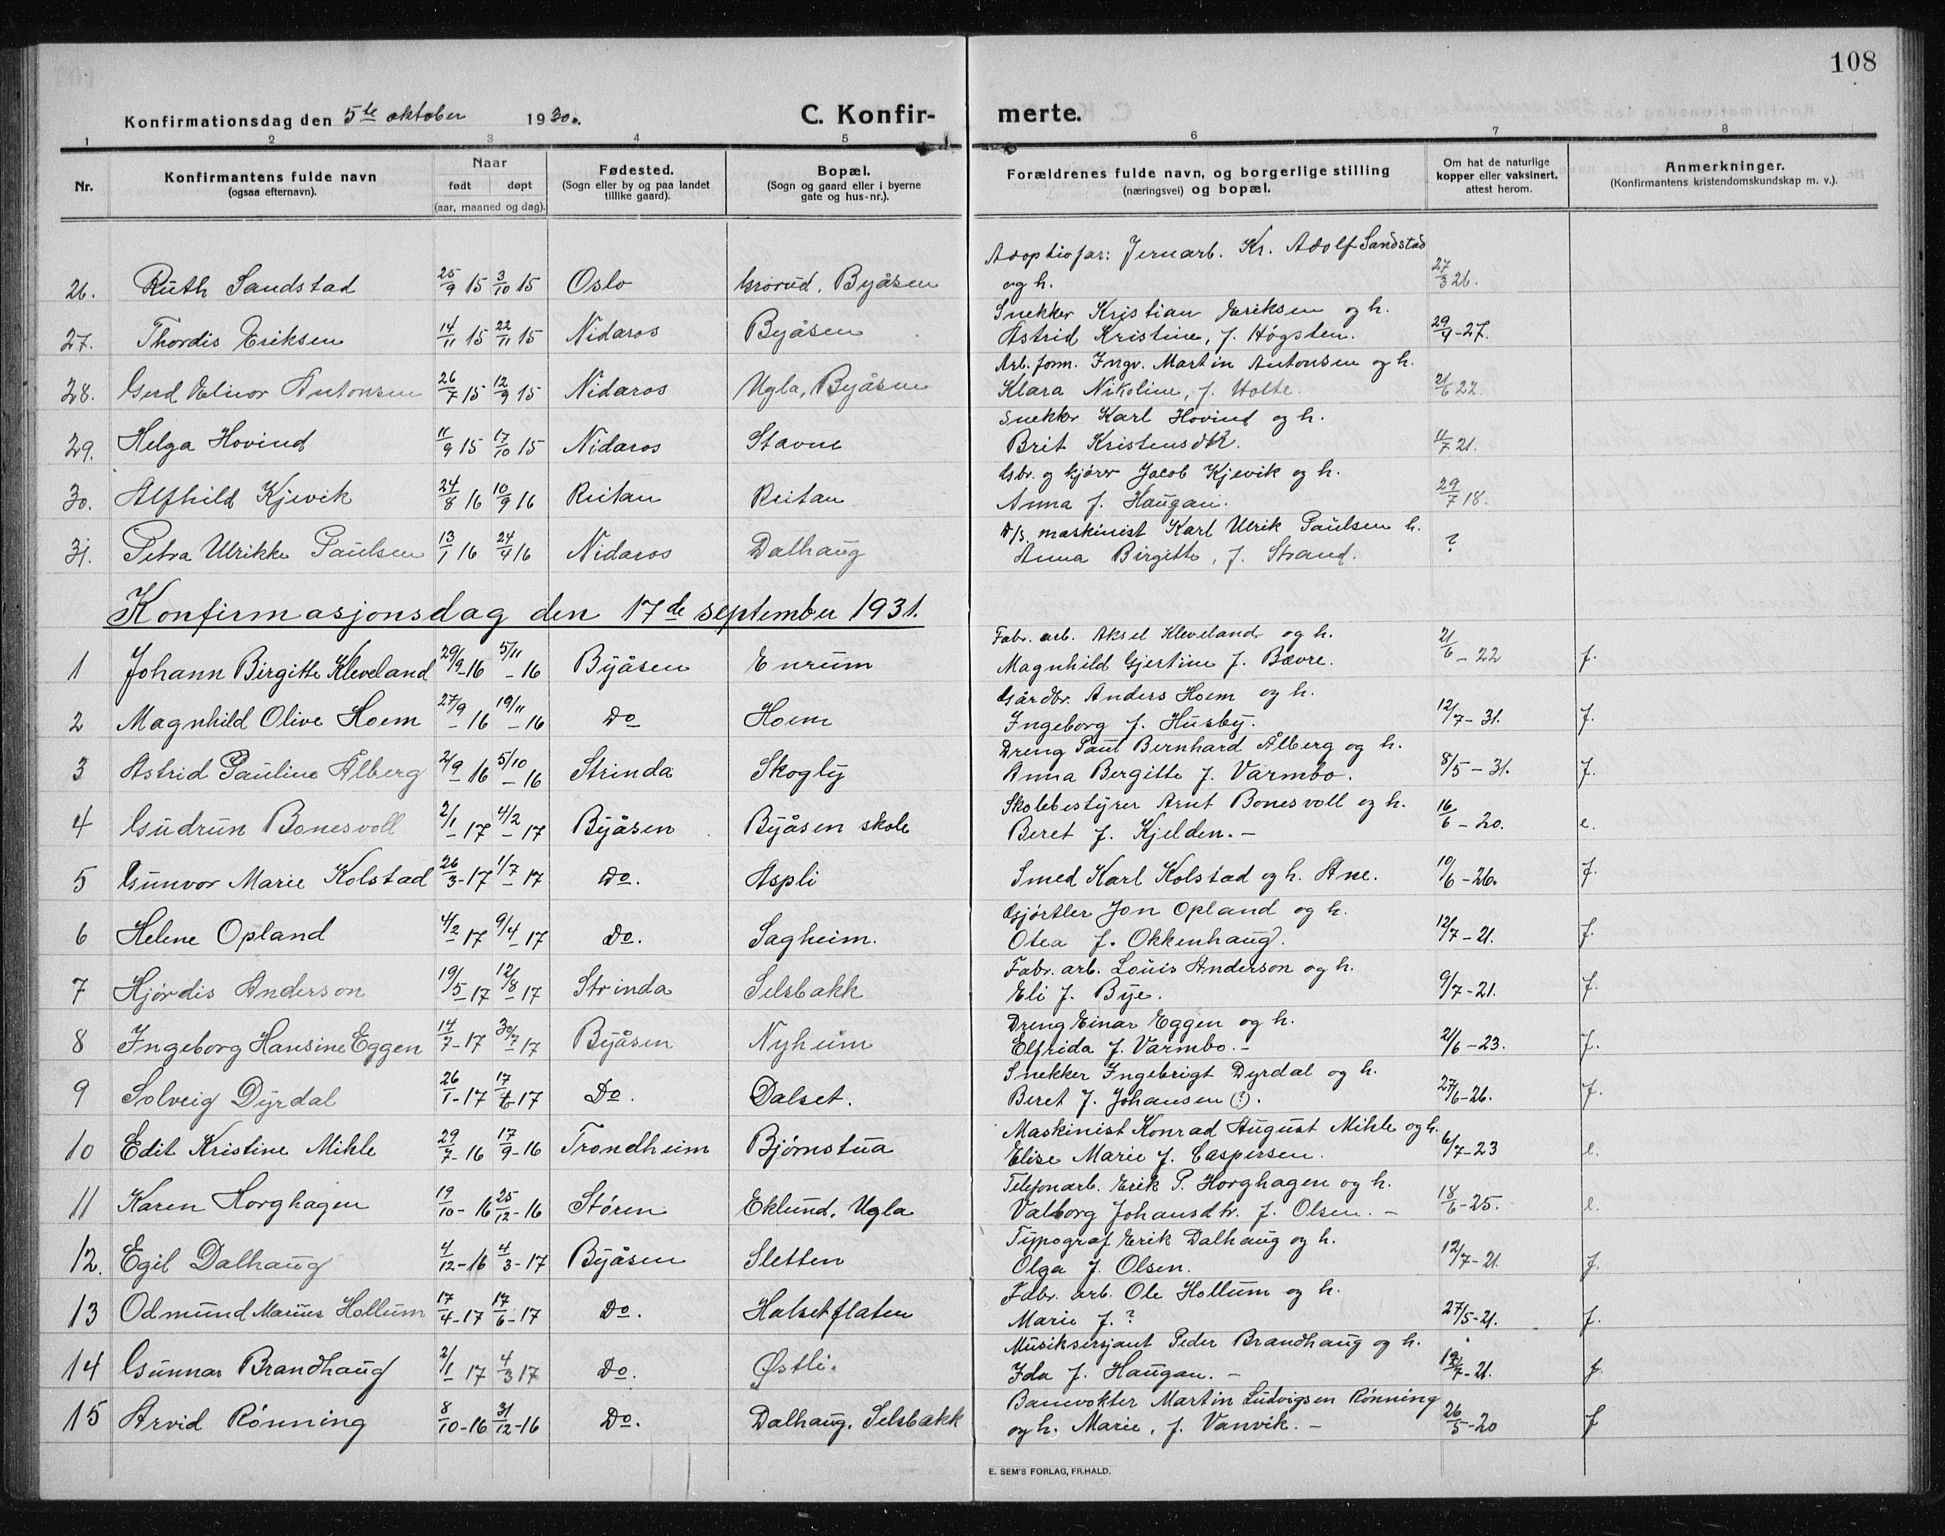 108
Konfirmationsdag den 5te oktober 1930. C. Konfir- merte.
1 2 3 4 5 6 7 8
Nr. Konfirmantens fulde navn (ogsaa efternavn). Naar født døpt (aar, maaned og dag). Fødested. (Sogn eller by og paa landet tillike gaard). Bopæl. (Sogn og gaard eller i byerne gate og hus-nr.). Forældrenes fulde navn, og borgerlige stilling (næringsvei) og bopæl. Om hat de naturlige kopper eller vaksinert, attest herom. Anmerkninger. (Konfirmantens kristendomskundskap m. v.).
Adoptiofar: Jernarb. Kr. Adolf Sandstad
26. Ruth Sandstad 25/9 15 3/10 15 Oslo Grorud, Byåsen og h. 27/3 26.
Snekker Kristian Eriksen og h.
27. Thordis Eriksen 14/11 15 22/11 15 Nidaros Byåsen Astrid Kristine, f. Høgsten. 29/4-27.
Arb. form. Ingv. Martin Antonsen og h.
28. Gerd Elinor Antonsen 26/7 15 12/9 15 Nidaros Ugla, Byåsen Klara Nikoline, f. Holte. 21/6 22.
Snekker Karl Hovind og h.
29. Helga Hovind 11/9 15 17/10 15 Nidaros Stavne Brit Kristensdtr. 11/7 21.
Gbr. og kjører Jacob Kjevik og h.
30. Alfhild Kjevik 24/8 16 10/9 16 Reitan Reitan Anna f. Haugan. 29/7 18.
D/S. maskinist Karl Ulrik Paulsen h.
31. Petra Ulrikke Paulsen 13/1 16 24/4 16 Nidaros Dalhaug Anna Birgitte, f. Strand. ?
Konfirmasjonsdag den 17de september 1931.
Fabr. arb. Aksel Kleveland og h.
1 Johann Birgitte Kleveland 29/9-16 5/11-16 Byåsen Enrum Magnhild Gjertine f. Bævre. 21/6-22 f.
Gårdbr. Anders Hoem og h.
2 Magnhild Olive Hoem 27/9-16 19/11-16 Do Hoem Ingeborg f. Husby. 12/7-31. f.
Dreng Paul Bernhard Ålberg og h.
3 Astrid Pauline Ålberg 2/9-16 5/10-16 Strinda Skogly Anna Bergitte f. Varmbo. 8/5-31. f.
Skolebestyrer Arnt Bonesvoll og h.
4 Gudrun Bonesvoll 2/1-17 4/2-17 Byåsen Byåsen skole Beret f. Kjelden.- 16/6-20. e.
5 Gunvor Marie Kolstad 26/3-17 1/7-17 Do. Aspli Smed Karl Kolstad og h. Ane. 10/6-26. f.
Gjørtler Jon Opland og h.
6 Helene Opland 4/2-17 9/4-17 Do. Sagheim. Otea f. Okkenhaug. 12/7-21. f.
Fabr. arb. Louis Anderson og h.
7 Hjørdis Anderson 19/5-17 12/8-17 Strinda Selsbakk Eli f. Bye. 9/7-21. f.
Dreng Einar Eggen og h.
8 Ingeborg Hansine Eggen 14/7-17 30/7-17 Byåsen Nyheim Elfrida f. Varmbo.- 21/6-23. f.
Snekker Ingebrigt Dyrdal og h.
9 Solveig Dyrdal 26/1-17 17/6-17 Do. Dalset. Beret f. Johansen (?). 27/6-26. f.
Maskinist Konrad August Mihle og h.
10 Edit Kristine Mihle 29/7-16 17/9-16 Trondheim Bjørnstua Elise Marie f. Caspersen. 6/7-23 e.
Telefonarb. Erik P. Horghagen og h.
11 Karen Horghagen 19/10-16 25/12-16 Støren Eklund, Ugla Valborg Johansdtr. f. Olsen.- 18/6-25. e.
Typograf Erik Dalhaug og h.
12. Egil Dalhaug 4/12-16 4/3-17 Byåsen Sletten Olga f. Olsen. 12/7-21. f.
Fabr. arb. Ole Hollum og h.
13 Odmund Marius Hollum 17/4-17 17/6-17 Do. Halsetflaten Marie f. ? 27/5-21. f.
Musiksersjant Peder Brandhaug og h.
14 Gunnar Brandhaug 2/1 17 4/3 17 Do. Østli. Ida f. Haugan.- 12/7-21. f
Banevokter Martin Ludvigsen Rønning
15 Arvid Rønning 8/10-16 31/12-16 Do. Dalhaug, Selsbakk og h. Marie, f. Vanvik.- 26/5-20 f
E. SEM'S FORLAG, FR.HALD.